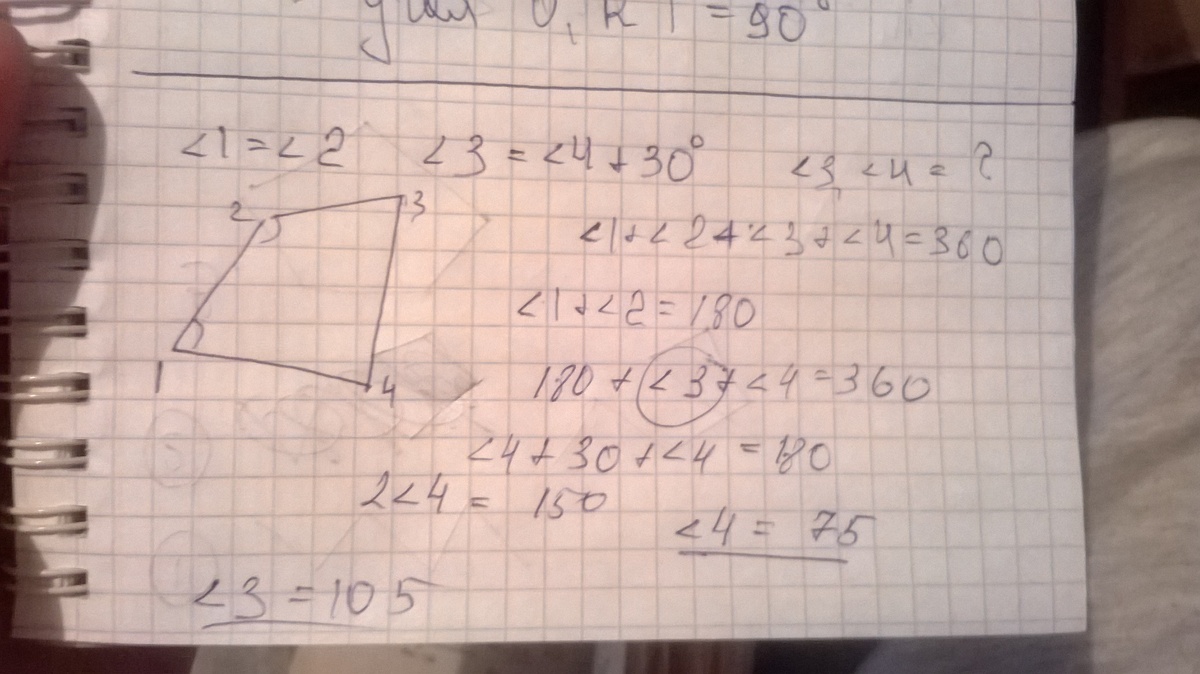 = 90°
<1 = <2 <3 = <4 + 30° <3, <4 = ?
2 3
<1 + <2 + <3 + <4 = 360
<1 + <2 = 180
1 4
180 + <3 + <4 = 360
<4 + 30 + <4 = 180
2<4 = 150
<4 = 75
<3 = 105